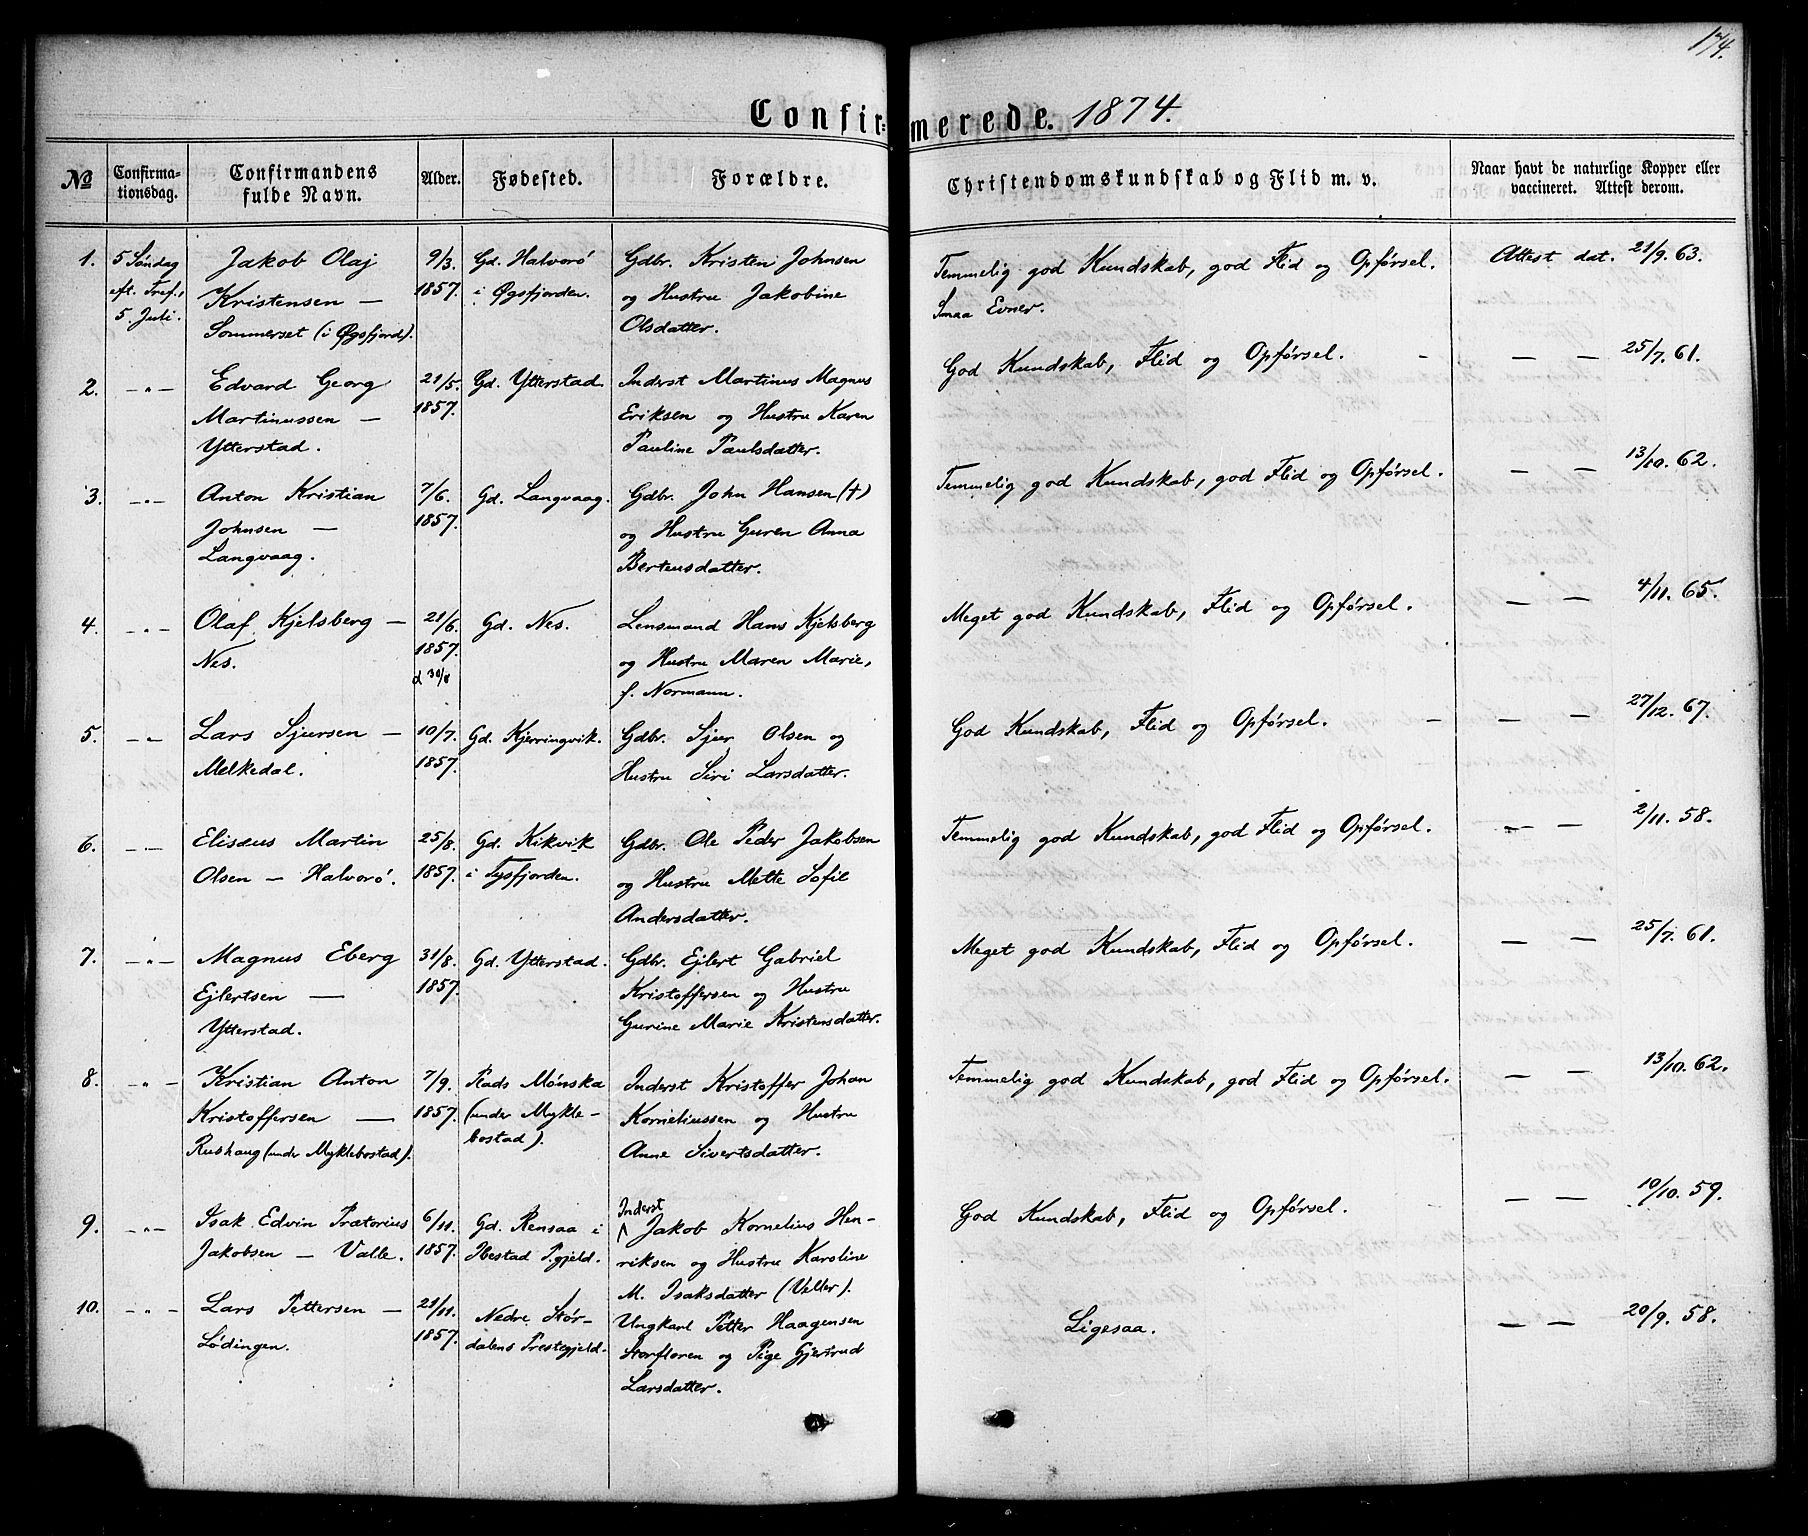 174.
Confirmerede. 1874.
No
Confirmationsdag.
Confirmandens fulde Navn.
Alder.
Fødested.
Forældre.
Christendomskundskab og Flid m. v.
Naar havt de naturlige Kopper eller vaccineret. Attest derom.
1. 5 Søndag Jakob Olaj 9/3. Gd. Halvorö Gdbr. Kristen Johnsen Temmelig god Kundskab, god Flid og Opførsel. Attest dat. 21/9. 63.
eft. Tref., Kristensen — 1857. i Øgsfjorden. og Hustru Jakobine Smaa Evner.
5. Juli. Sommerset (i Øgsfjord). Olsdatter.
2. —„— Edvard Georg 21/5. Gd. Ytterstad. Inderst Martinus Magnus God Kundskab, Flid og Opførsel. — — — 25/7. 61.
Martinussen — 1857. Eriksen og Hustru Karen
Ytterstad. Pauline Paulsdatter.
3. —„— Anton Kristian 7/6. Gd. Langvaag. Gdbr. John Hansen (†) Temmelig god Kundskab, god Flid og Opførsel. — — 13/10. 62.
Johnsen — 1857. og Hustru Guren Anna
Langvaag. Berteusdatter.
4. —„— Olaf Kjelsberg — 21/6. Gd. Nes. Lensmand Hans Kjelsberg Meget god Kundskab, Flid og Opførsel. — — 4/11. 65.
Nes. 1857. og Hustru Maren Marie,
d 30/8 f. Normann.
5. —„— Lars Sjursen — 10/7. Gd. Kjerringvik. Gdbr. Sjur Olsen og God Kundskab, Flid og Opførsel. — — — 27/12. 67.
Melkedal. 1857. Hustru Siri Larsdatter.
6. —„— Elisæus Martin 25/8. Gd. Kikvik Gdbr. Ole Peder Jakobsen Temmelig god Kundskab, god Flid og Opførsel. — — 2/11. 58.
Olsen — Halvorö. 1857. i Tysfjorden. og Hustru Mette Sofie
Andersdatter.
7. —„— Magnus Eberg 31/8. Gd. Ytterstad. Gdbr. Ejlert Gabriel Meget god Kundskab, Flid og Opførsel. — — 25/7. 61.
Ejlertsen — 1857. Kristoffersen og Hustru
Ytterstad. Gurine Marie Kristensdatter.
8. —„— Kristian Anton 7/9. Plads Mønska Inderst Kristoffer Johan Temmelig god Kundskab, god Flid og Opførsel. — — 13/10. 62.
Kristoffersen — 1857. (under Mykle- Korneliussen og Hustru
Rushaug (under Myklebostad). bostad). Anne Sivertsdatter.
9. —„— Isak Edvin Prætorius 6/11. Gd. Rensaa i Inderst Jakob Kornelius Hen- God Kundskab, Flid og Opførsel. — — — 10/10. 59.
Jakobsen — Valle. 1857. Ibestad P.gjeld. riksen og Hustru Karoline
M. Isaksdatter (Valler).
10. —„— Lars Pettersen — 21/11. Nedre Stør- Ungkarl Petter Haagensen Ligesaa. — — 20/9. 58.
Lödingen. 1857. dalens Prestegjeld. Storfloren og Pige Gjertrud
Larsdatter.